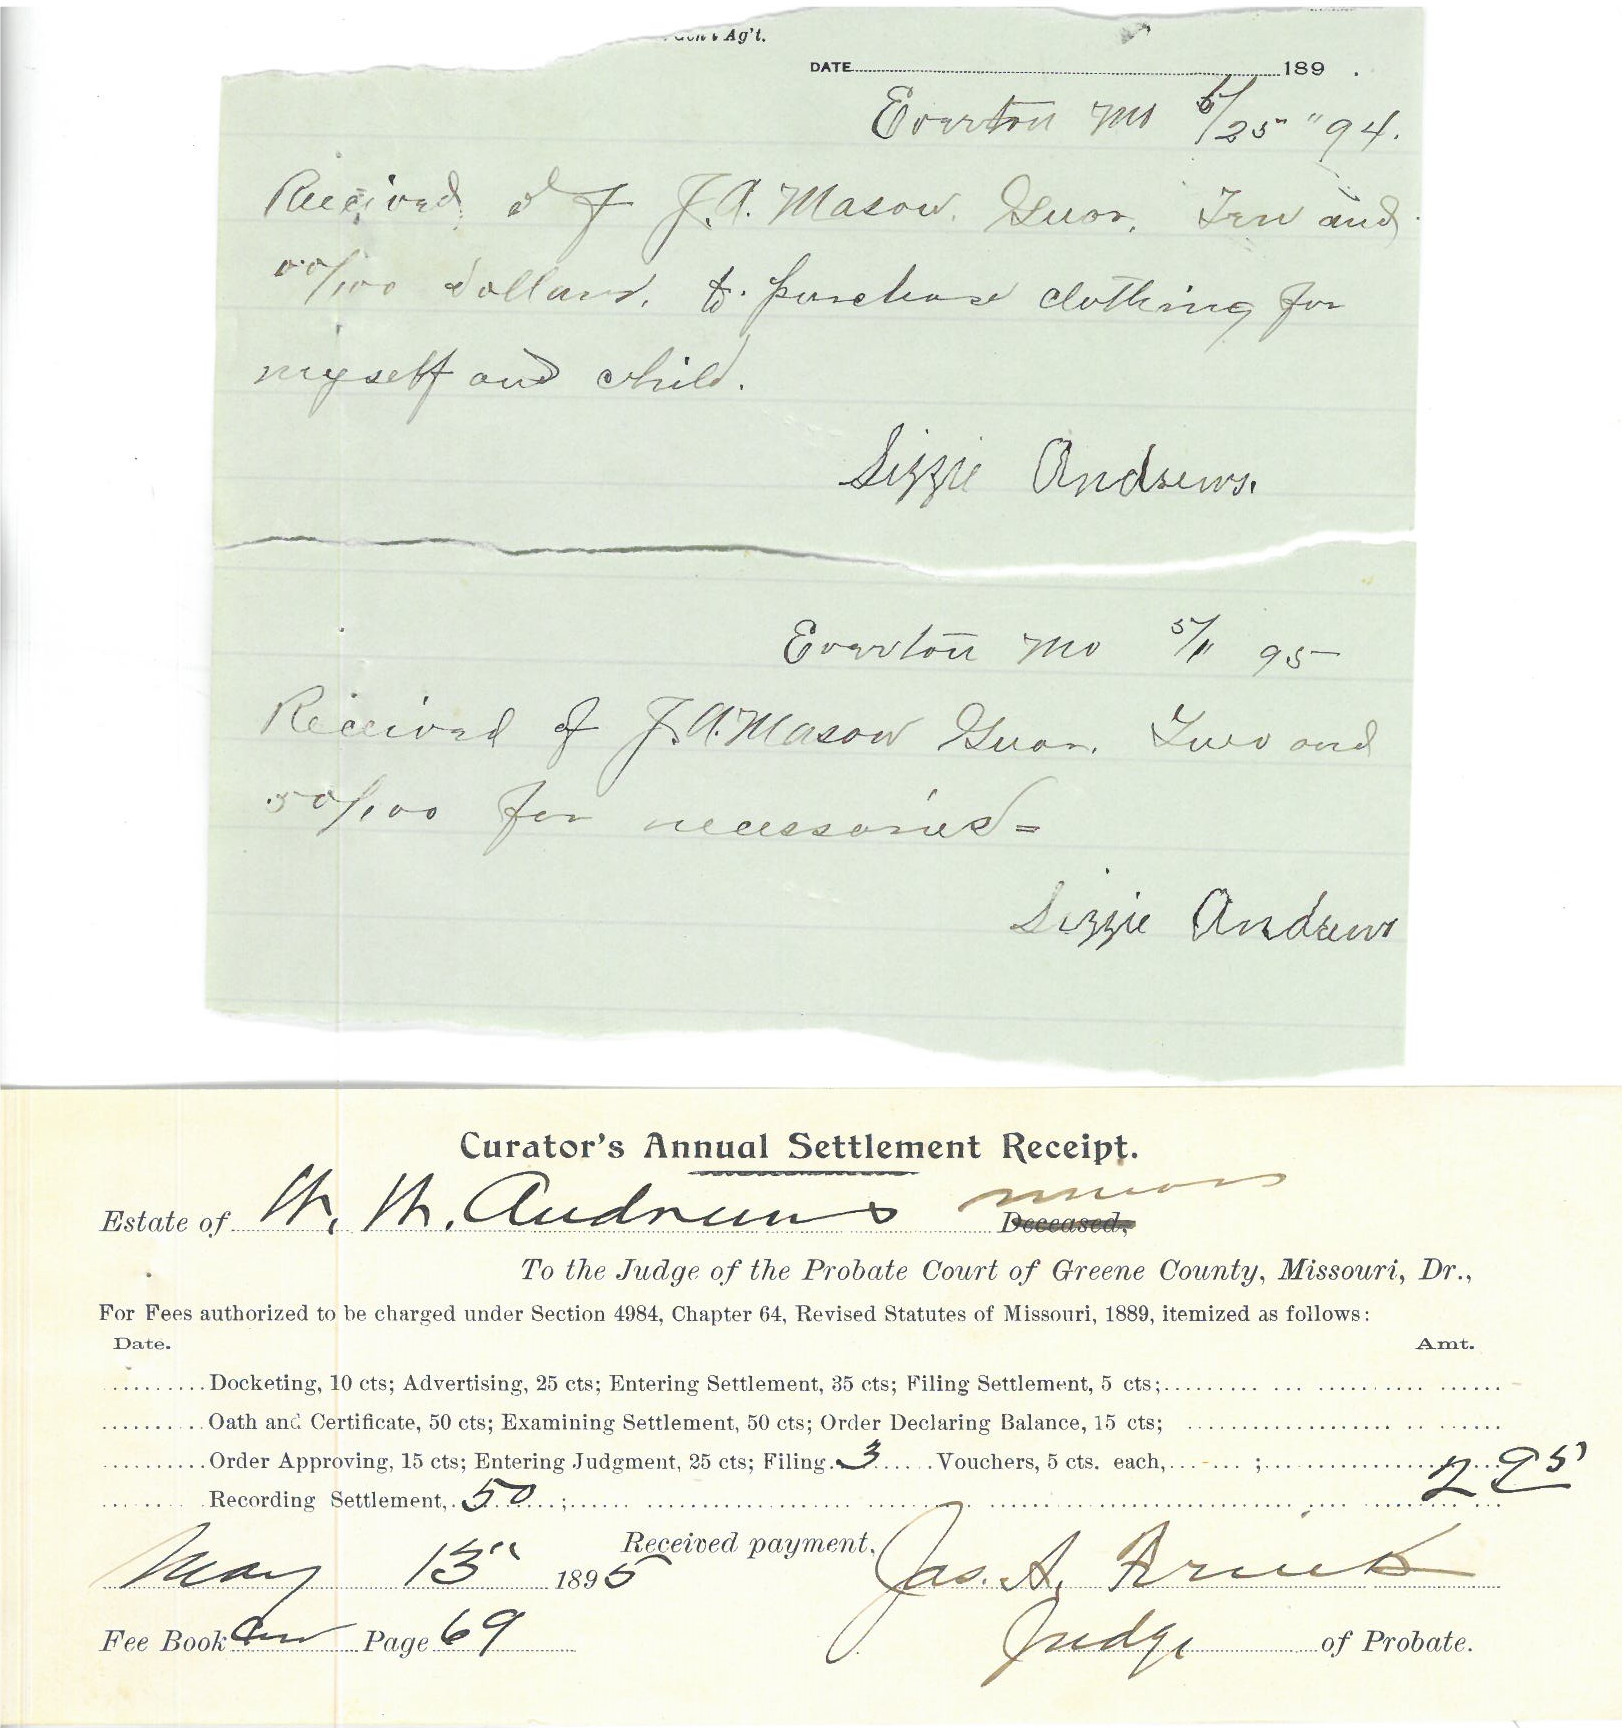 Ag't.
DATE 189 .
Everton Mo 5/25 "94.
Received of J. A. Mason. Guar. Ten and
00/100 dollars. to purchase clothing for
myself and child.
Lizzie Andrews.
Everton Mo 5/1 95
Received of J. A. Mason Guar. Two and
50/100 for necessaries =
Lizzie Andrews
Curator's Annual Settlement Receipt.
Estate of Andrews minors Deceased,
To the Judge of the Probate Court of Greene County, Missouri, Dr.,
For Fees authorized to be charged under Section 4984, Chapter 64, Revised Statutes of Missouri, 1889, itemized as follows:
Date. Amt.
Docketing, 10 cts; Advertising, 25 cts; Entering Settlement, 35 cts; Filing Settlement, 5 cts;
Oath and Certificate, 50 cts; Examining Settlement, 50 cts; Order Declaring Balance, 15 cts;
Order Approving, 15 cts; Entering Judgment, 25 cts; Filing 3 Vouchers, 5 cts. each, ; 2 95
Recording Settlement, 50 ;
Received payment,
May 13" 1895 Jas. A.
Fee Book Page 69 Judge of Probate.